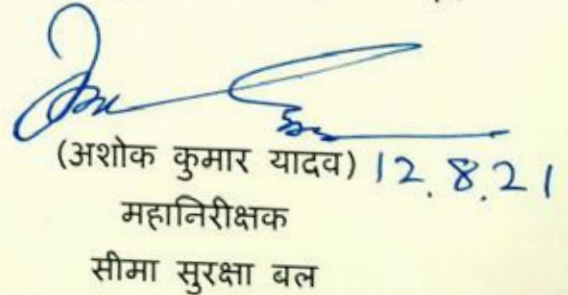 (अशोक कुमार यादव) 12.8.21
महानिरीक्षक
सीमा सुरक्षा बल